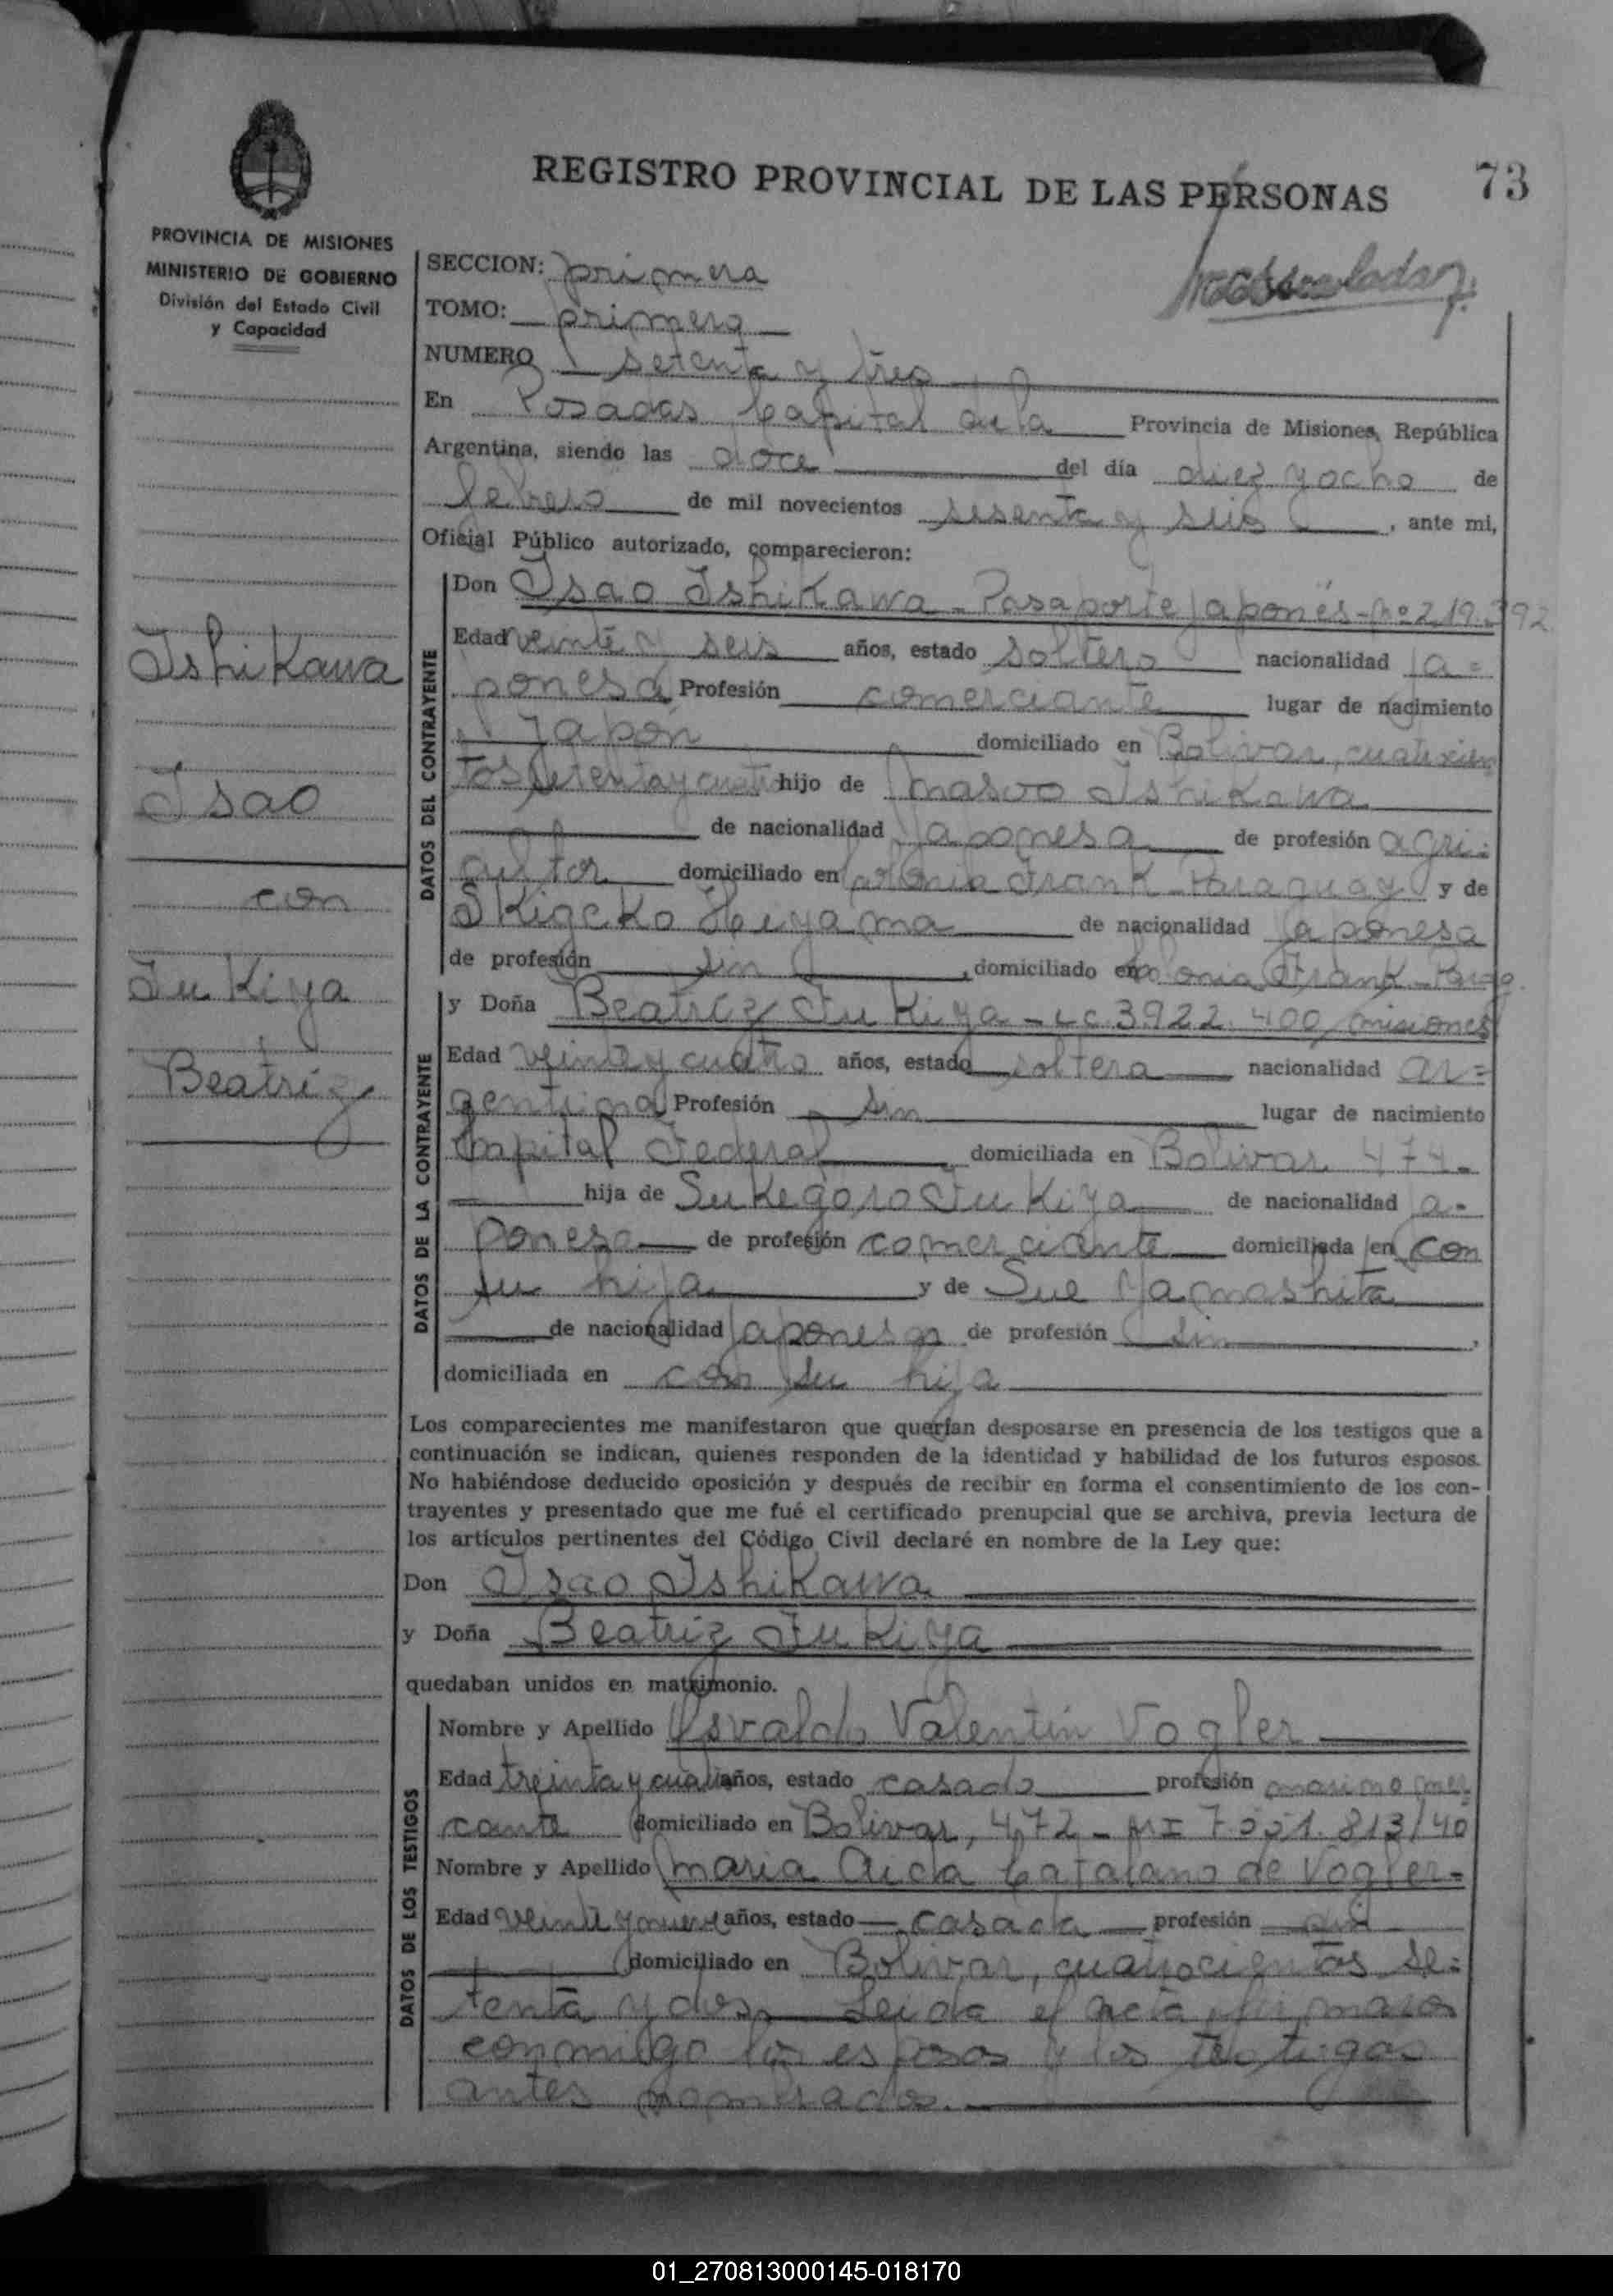 REGISTRO PROVINCIAL DE LAS PERSONAS
73
PROVINCIA DE MISIONES
MINISTERIO DE GOBIERNO
División del Estado Civil
y Capacidad
SECCION: primera
TOMO: primero
NUMERO setenta y tres
En Posadas Capital de la Provincia de Misiones, República
Argentina, siendo las doce del día diez y ocho de
febrero de mil novecientos sesenta y seis, ante mi,
Oficial Público autorizado, comparecieron:
Ishikawa
Isao
con
Fukiya
Beatríz
DATOS DEL CONTRAYENTE
Don Isao Ishikawa - Pasaporte Japonés - Nº 219.392
Edad veinte y seis años, estado soltero nacionalidad ja=
ponesa Profesión comerciante lugar de nacimiento
Japón domiciliado en Bolivar, cuatrocien
tos setenta y cuatro hijo de Masvo Ishikawa
de nacionalidad japonesa de profesión agri=
cultor domiciliado en Colonia Frank - Paraguay y de
Skigeko Heyama de nacionalidad japonesa
de profesión sin, domiciliado en Colonia Frank - Parag.
DATOS DE LA CONTRAYENTE
y Doña Beatríz Fukiya - L.C. 3.922.400, Misiones
Edad veinte y cuatro años, estado soltera nacionalidad ar=
gentina Profesión sin lugar de nacimiento
Capital Federal domiciliada en Bolivar 474-
hija de Sukegoro Fukiya de nacionalidad ja-
ponesa de profesión comerciante domiciliada en con
su hija y de Sue Yamashita
de nacionalidad japonesa de profesión sin,
domiciliada en con su hija
Los comparecientes me manifestaron que querían desposarse en presencia de los testigos que a
continuación se indican, quienes responden de la identidad y habilidad de los futuros esposos.
No habiéndose deducido oposición y después de recibir en forma el consentimiento de los con-
trayentes y presentado que me fué el certificado prenupcial que se archiva, previa lectura de
los artículos pertinentes del Código Civil declaré en nombre de la Ley que:
Don Isao Ishikawa
y Doña Beatriz Fukiya
quedaban unidos en matrimonio.
DATOS DE LOS TESTIGOS
Nombre y Apellido Osvaldo Valentín Vogler
Edad treinta y cuatro años, estado casado profesión marino mer
cante domiciliado en Bolivar, 472 - MI
Nombre y Apellido Maria Aida Catalano de Vogler-
Edad veinte y nueve años, estado casada profesión sin
domiciliado en Bolivar, cuatrocientos se=
tenta y dos. Leida el acta, firmaron
conmigo los esposos y los testigos
antes nombrados.
01_270813000145-018170